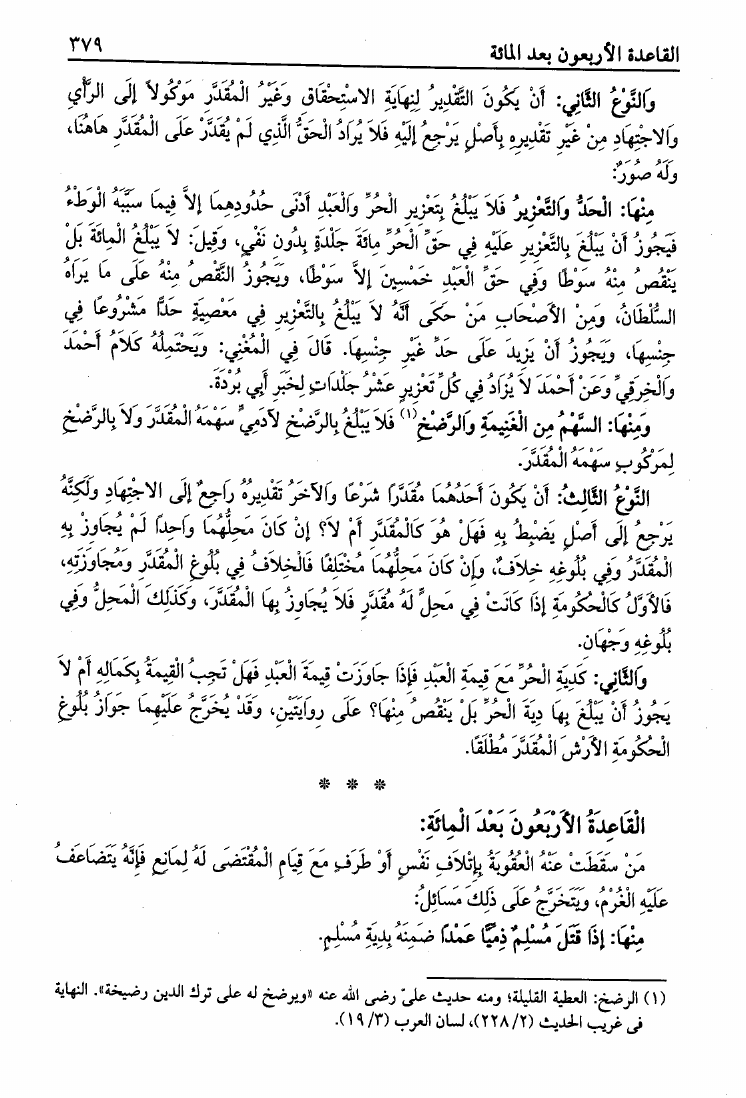 القاعدة الأربعون بعد المائة
٣٧٩
وَالنَّوْعُ الثَّانِي: أَنْ يَكُونَ التَّقْدِيرُ لِنِهَايَةِ الاسْتِحْقَاقِ وَغَيْرُ الْمُقَدَّرِ مَوْكُولاً إِلَى الرَّأْيِ
وَالاجْتِهَادِ مِنْ غَيْرِ تَقْدِيرِهِ بِأَصْلٍ يَرْجِعُ إِلَيْهِ فَلاَ يُرَادُ الْحَقُّ الَّذِي لَمْ يُقَدَّرْ عَلَى الْمُقَدَّرِ هَاهُنَا،
وَلَهُ صُوَرٌ:
مِنْهَا: الْحَدُّ وَالتَّعْزِيرُ فَلاَ يَبْلُغُ بِتَعْزِيرِ الْحُرِّ وَالْعَبْدِ أَدْنَى حُدُودِهِمَا إِلاَّ فِيمَا سَبَبُهُ الْوَطْءُ
فَيَجُوزُ أَنْ يَبْلُغَ بِالتَّعْزِيرِ عَلَيْهِ فِي حَقِّ الْحُرِّ مِائَةَ جَلْدَةٍ بِدُونِ نَفْيٍ، وَقِيلَ: لاَ يَبْلُغُ الْمِائَةَ بَلْ
يَنْقُصُ مِنْهُ سَوْطًا وَفِي حَقِّ الْعَبْدِ خَمْسِينَ إِلاَّ سَوْطًا، وَيَجُوزُ النَّقْصُ مِنْهُ عَلَى مَا يَرَاهُ
السُّلْطَانُ، وَمِنْ الأَصْحَابِ مَنْ حَكَى أَنَّهُ لاَ يَبْلُغُ بِالتَّعْزِيرِ فِي مَعْصِيَةٍ حَدًّا مَشْرُوعًا فِي
جِنْسِهَا، وَيَجُوزُ أَنْ يَزِيدَ عَلَى حَدِّ غَيْرِ جِنْسِهَا. قَالَ فِي الْمُغْنِي: وَيَحْتَمِلُهُ كَلاَمُ أَحْمَدَ
وَالْخِرَقِيِّ وَعَنْ أَحْمَدَ لاَ يُزَادُ فِي كُلِّ تَعْزِيرٍ عَشْرُ جَلَدَاتٍ لِخَبَرِ أَبِي بُرْدَةَ.
وَمِنْهَا: السَّهْمُ مِن الْغَنِيمَةِ وَالرَّضْخِ(١) فَلاَ يَبْلُغُ بِالرَّضْخِ لآدَمِيٍّ سَهْمَهُ الْمُقَدَّرَ وَلاَ بِالرَّضْخِ
لِمَرْكُوبٍ سَهْمَهُ الْمُقَدَّرَ.
النَّوْعُ الثَّالِثُ: أَنْ يَكُونَ أَحَدُهُمَا مُقَدَّرًا شَرْعًا وَالآخَرُ تَقْدِيرُهُ رَاجِعٌ إِلَى الاجْتِهَادِ وَلَكِنَّهُ
يَرْجِعُ إِلَى أَصْلٍ يَضْبِطُ بِهِ فَهَلْ هُوَ كَالْمُقَدَّرِ أَمْ لاَ؟ إِنْ كَانَ مَحِلُّهُمَا وَاحِدًا لَمْ يُجَاوِزْ بِهِ
الْمُقَدَّرُ وَفِي بُلُوغِهِ خِلاَفٌ، وَإِنْ كَانَ مَحِلُّهُمَا مُخْتَلِفًا فَالْخِلاَفُ فِي بُلُوغِ الْمُقَدَّرِ وَمُجَاوَزَتِهِ،
فَالأَوَّلُ كَالْحُكُومَةِ إِذَا كَانَتْ فِي مَحِلٍّ لَهُ مُقَدَّرٍ فَلاَ يُجَاوِزُ بِهَا الْمُقَدَّرَ، وَكَذَلِكَ الْمَحِلُّ وَفِي
بُلُوغِهِ وَجْهَان.
وَالثَّانِي: كَدِيَةِ الْحُرِّ مَعَ قِيمَةِ الْعَبْدِ فَإِذَا جَاوَزَتْ قِيمَةُ الْعَبْدِ فَهَلْ تَجِبُ الْقِيمَةُ بِكَمَالِهِ أَمْ لاَ
يَجُوزُ أَنْ يَبْلُغَ بِهَا دِيَةَ الْحُرِّ بَلْ يَنْقُصُ مِنْهَا؟ عَلَى رِوَايَتَيْنِ، وَقَدْ يُخَرَّجُ عَلَيْهِمَا جَوَازُ بُلُوغِ
الْحُكُومَةِ الأَرْشَ الْمُقَدَّرَ مُطْلَقًا.
* * *
الْقَاعِدَةُ الأَرْبَعُونَ بَعْدَ الْمِائَةِ:
مَنْ سَقَطَتْ عَنْهُ الْعُقُوبَةُ بِإِتْلاَفِ نَفْسٍ أَوْ طَرَفٍ مَعَ قِيَامِ الْمُقْتَضَى لَهُ لِمَانِعٍ فَإِنَّهُ يَتَضَاعَفُ
عَلَيْهِ الْغُرْمُ، وَيَتَخَرَّجُ عَلَى ذَلِكَ مَسَائِلُ:
مِنْهَا: إِذَا قَتَلَ مُسْلِمٌ ذِمِّيًّا عَمْدًا ضَمِنَهُ بِدِيَةِ مُسْلِمٍ.
(١) الرضخ: العطية القليلة؛ ومنه حديث علىّ رضى الله عنه «ويرضخ له على ترك الدين رضيخة». النهاية
فى غريب الحديث (٢/ ٢٢٨)، لسان العرب (٣/ ١٩).